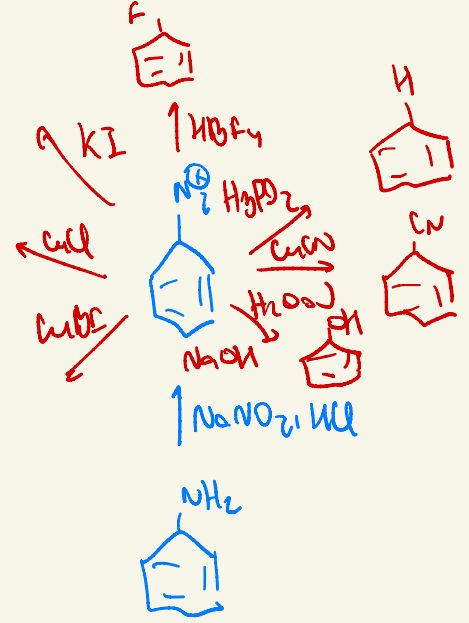 F
HBF4
H
KI
N2 ⊕
H3PO2
CN
CuCl
CuCN
CuBr
H2O
OH
NaOH
NaNO2, HCl
NH2